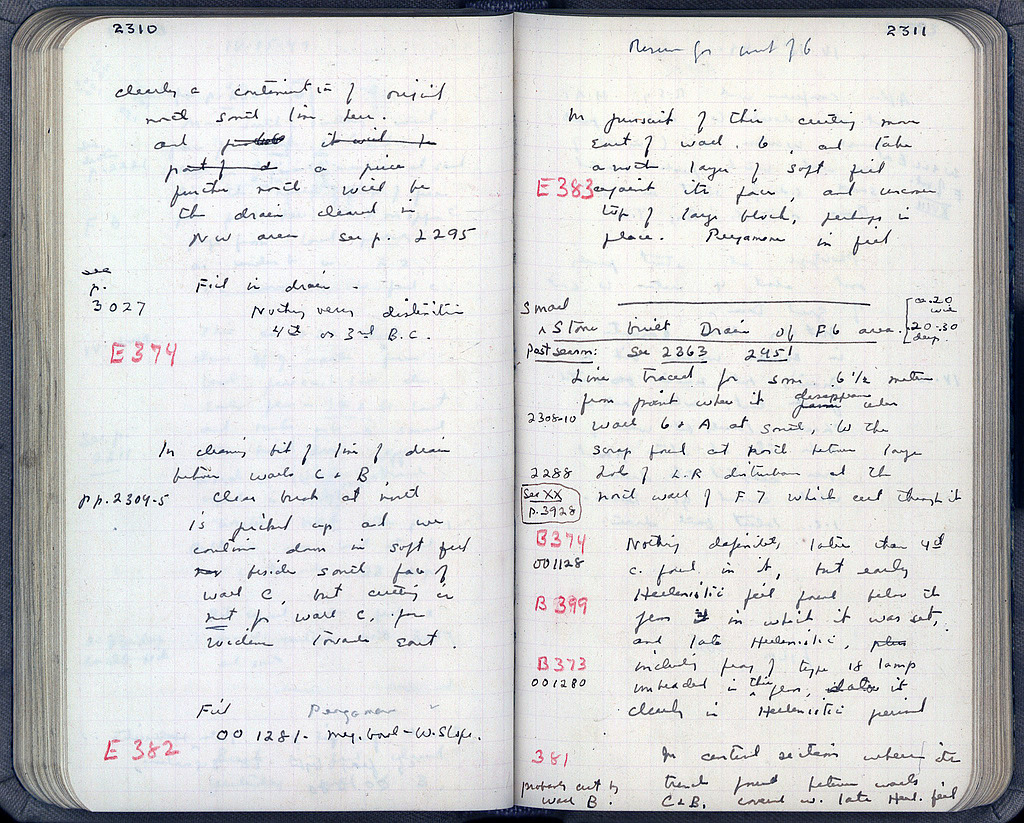 2310
clearly a continuation of original
north south line here.
and it will be
part of a piece
further north will be
the drain cleared in
NW area see p. 2295
see
p.
3027
Fill in drain -
Nothing very distinctive
4th or 3rd B.C.
E 374
In cleaning bit of line of drain
between walls C & B,
pp. 2304-5
clear break at north
is picked up and we
continue down in soft fill
beside south face of
wall C, but cutting is
not for wall C, for
widens towards east.
Fill Pergamene
00 1281 - meg. bowl - W. Slope.
E 382
2311
east of 6
In pursuit of this cutting more
East of wall 6, and take
another layer of soft fill
E 383 against its face, and uncover
top of large block, perhaps in
place. Pergamene in fill
Small
^ Stone built Drain of F6 area.
ca. .20
wide
.20-.30
deep.
Past season: See 2363 2451
Line traced for some 6 1/2 meters
from point where it disappears under
2308-10
wall 6 & A at south, to the
scrap found at north between large
2288
hole of L.R. disturbance and the
See XX
p. 3928
north wall of F 7 which cut through it
B 374
001128
Nothing definitely later than 4th
c. found in it, but early
B 399
Hellenistic fill found below the
in which it was set,
and late Hellenistic,
B 373
001280
including frag of type 18 lamp
in this
clearly in Hellenistic period
381
In central section where its
probably cut by
wall B.
trench found between walls
C & B, covered w. late Hell. fill